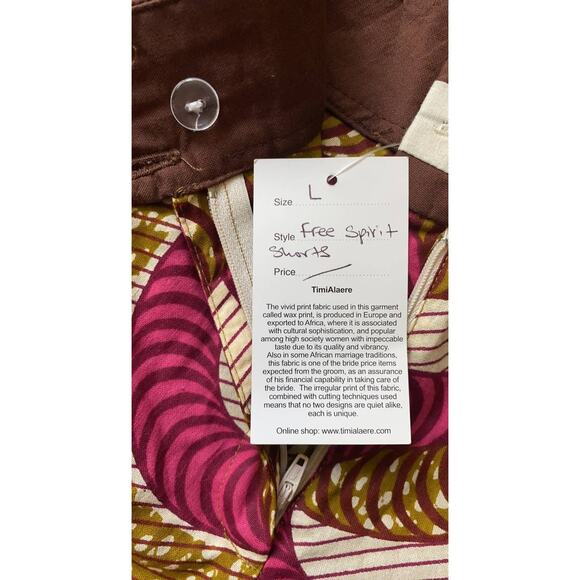 Size L
Style Free Spirit
Shorts
Price
TimiAlaere
The vivid print fabric used in this garment
called wax print, is produced in Europe and
exported to Africa, where it is associated
with cultural sophistication, and popular
among high society women with impeccable
taste due to its quality and vibrancy.
Also in some African marriage traditions,
this fabric is one of the bride price items
expected from the groom, as an assurance
of his financial capability in taking care of
the bride. The irregular print of this fabric,
combined with cutting techniques used
means that no two designs are quiet alike,
each is unique.
Online shop: www.timialaere.com